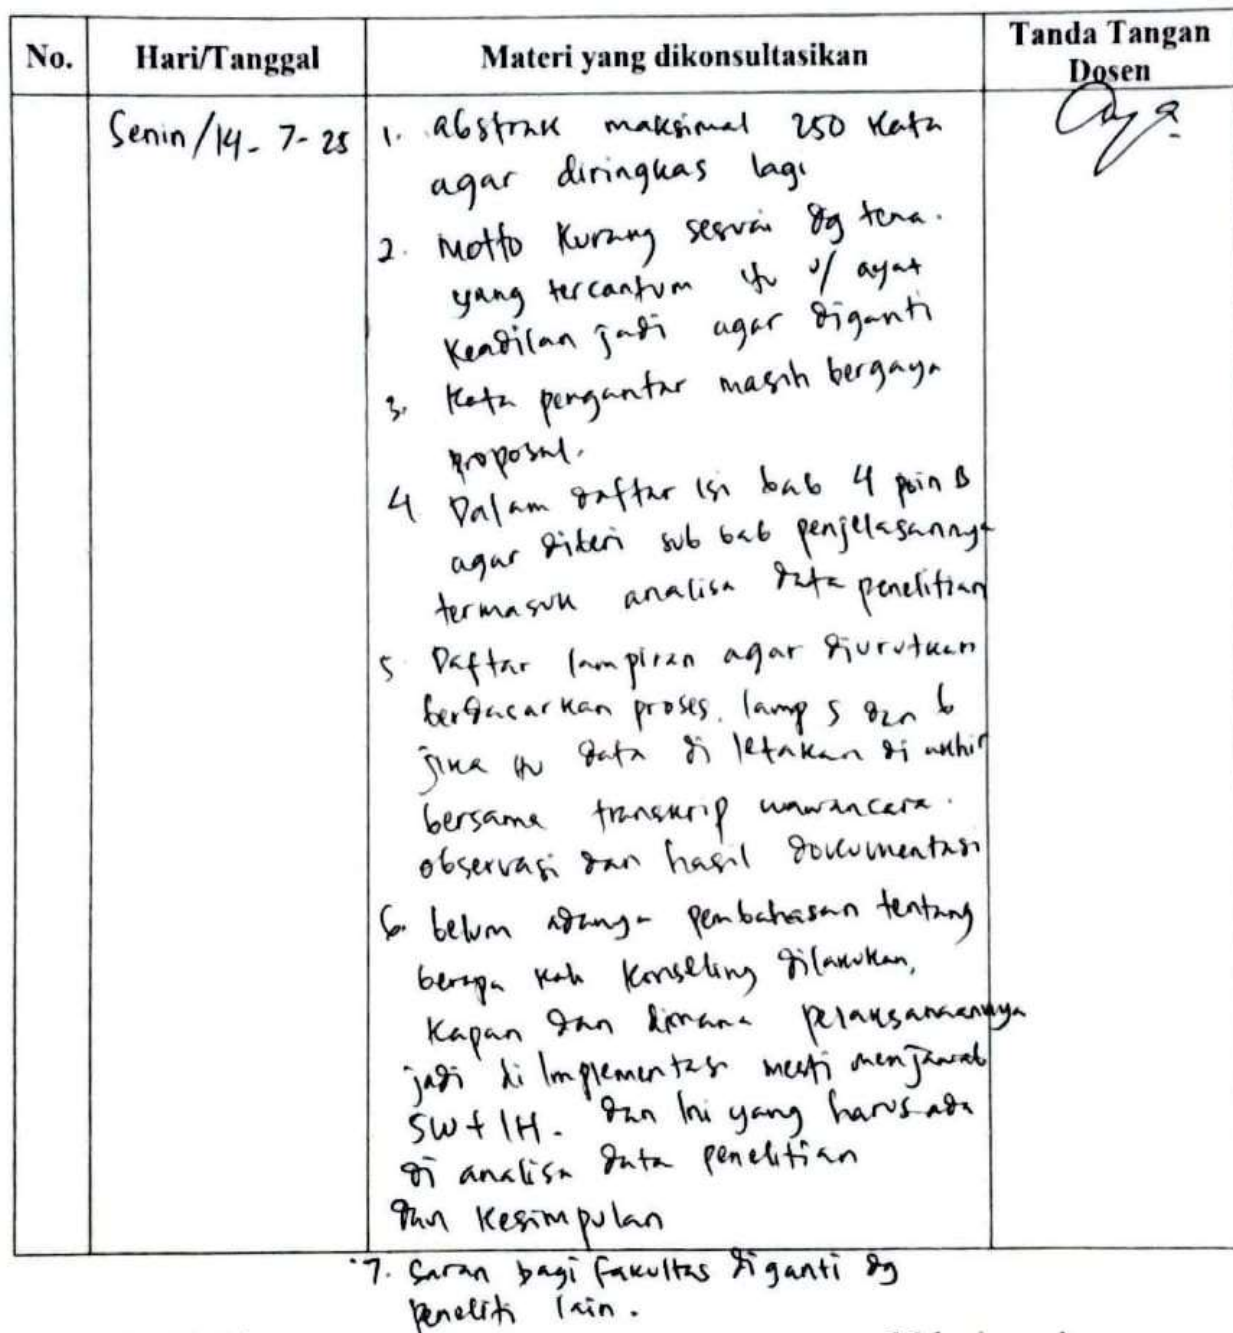 No. Hari/Tanggal Materi yang dikonsultasikan Tanda Tangan Dosen
Senin/14-7-25
1. abstrak maksimal 250 kata
agar diringkas lagi
2. Motto Kurang sesuai dg tema.
yang tercantum itu u/ ayat
Keadilan jadi agar diganti
3. Kata pengantar masih bergaya
proposal.
4 Dalam daftar isi bab 4 poin B
agar diberi sub bab penjelasannya
termasuk analisa data penelitian
5 Daftar lampiran agar diurutkan
berdasarkan proses. lamp 5 dan 6
jika itu data di letakan di akhir
bersama transkrip wawancara.
observasi dan hasil dokumentasi
6. belum adanya pembahasan tentang
berapa kali Konseling dilakukan,
Kapan dan dimana pelaksanaannya
jadi di Implementasi mesti menjawab
5W + 1H. dan Ini yang harus ada
di analisa data penelitian
dan Kesimpulan
7. Saran bagi fakultas diganti dg
peneliti lain.